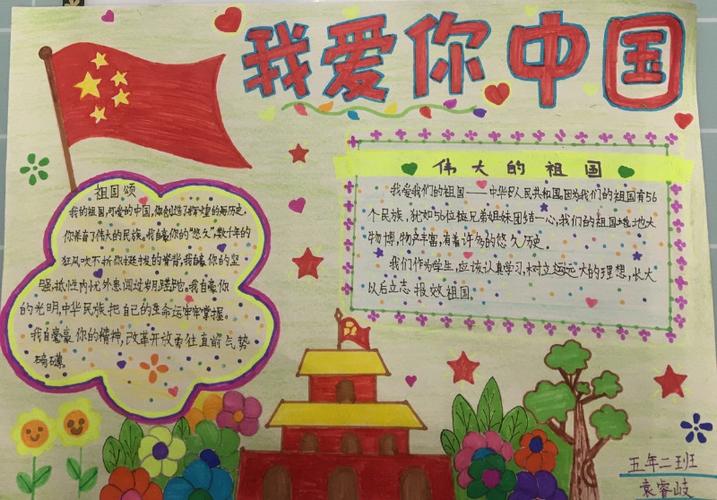 我爱你中国
祖国颂
我的祖国,可爱的中国,你创造了辉煌的历史,
你养育了伟大的民族。我自豪你的“悠久”,数千年的
狂风吹不折你挺拔的脊背,我自豪你的坚
强,抵住内忧外患闯过岁月蹉跎。我自豪你
的光明,中华民族把自己的生命运牢牢掌握。
我自豪你的精神,改革开放勇往直前气势
磅礴。
伟大的祖国
我爱我们的祖国——中华人民共和国,因为我们的祖国有56
个民族,犹如56位兄弟姐妹团结一心,我们的祖国地大
物博,物产丰富,有着许多的悠久历史。
我们作为学生,应该认真学习,树立远大的理想,长大
以后立志报效祖国。
五年二班
袁睿岐